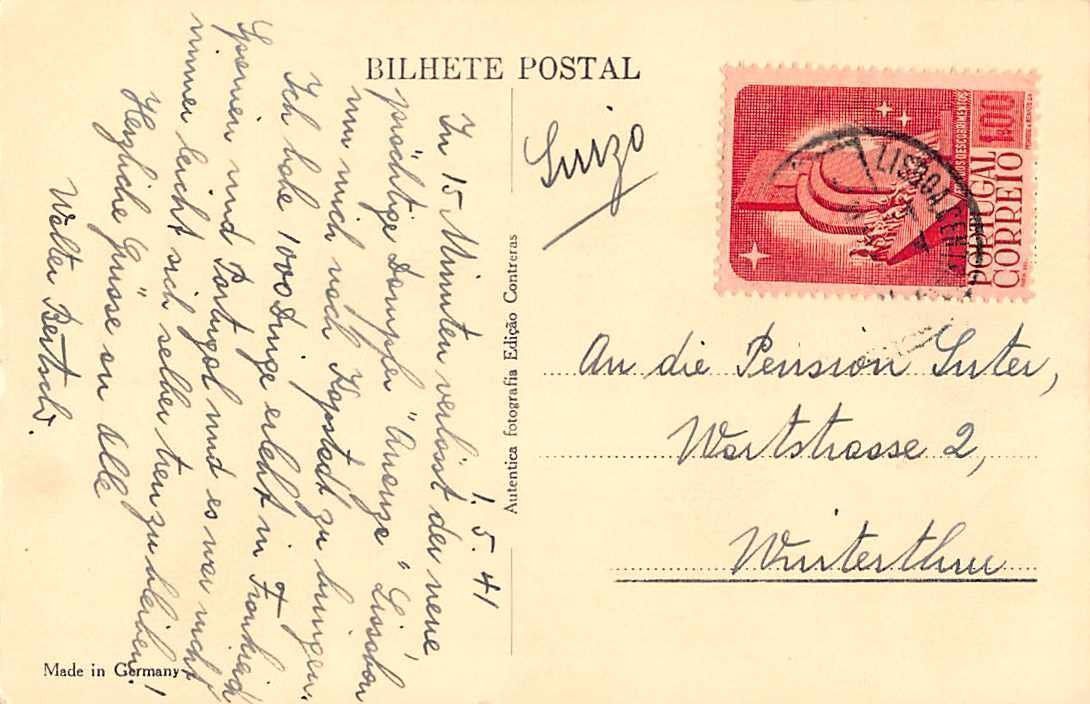 BILHETE POSTAL
1.5.41
In 15 Minuten verlässt der neue,
prächtige Dampfer "Quanza" Lissabon
um mich nach Kapstadt zu bringen.
Ich habe 1000 Dinge erlebt in Frankreich
Spanien und Portugal und es war nicht
immer leicht sich selber treu zu bleiben!
Herzliche Grüsse an Alle
Walter Bertschi.
Made in Germany
Autentica fotografia Edição Contreras
Suizo
1$00
DESCOBRIMENTOS
PORTUGAL
CORREIO
LISBOA CENTRAL
An die Pension Suter,
Wartstrasse 2,
Winterthur